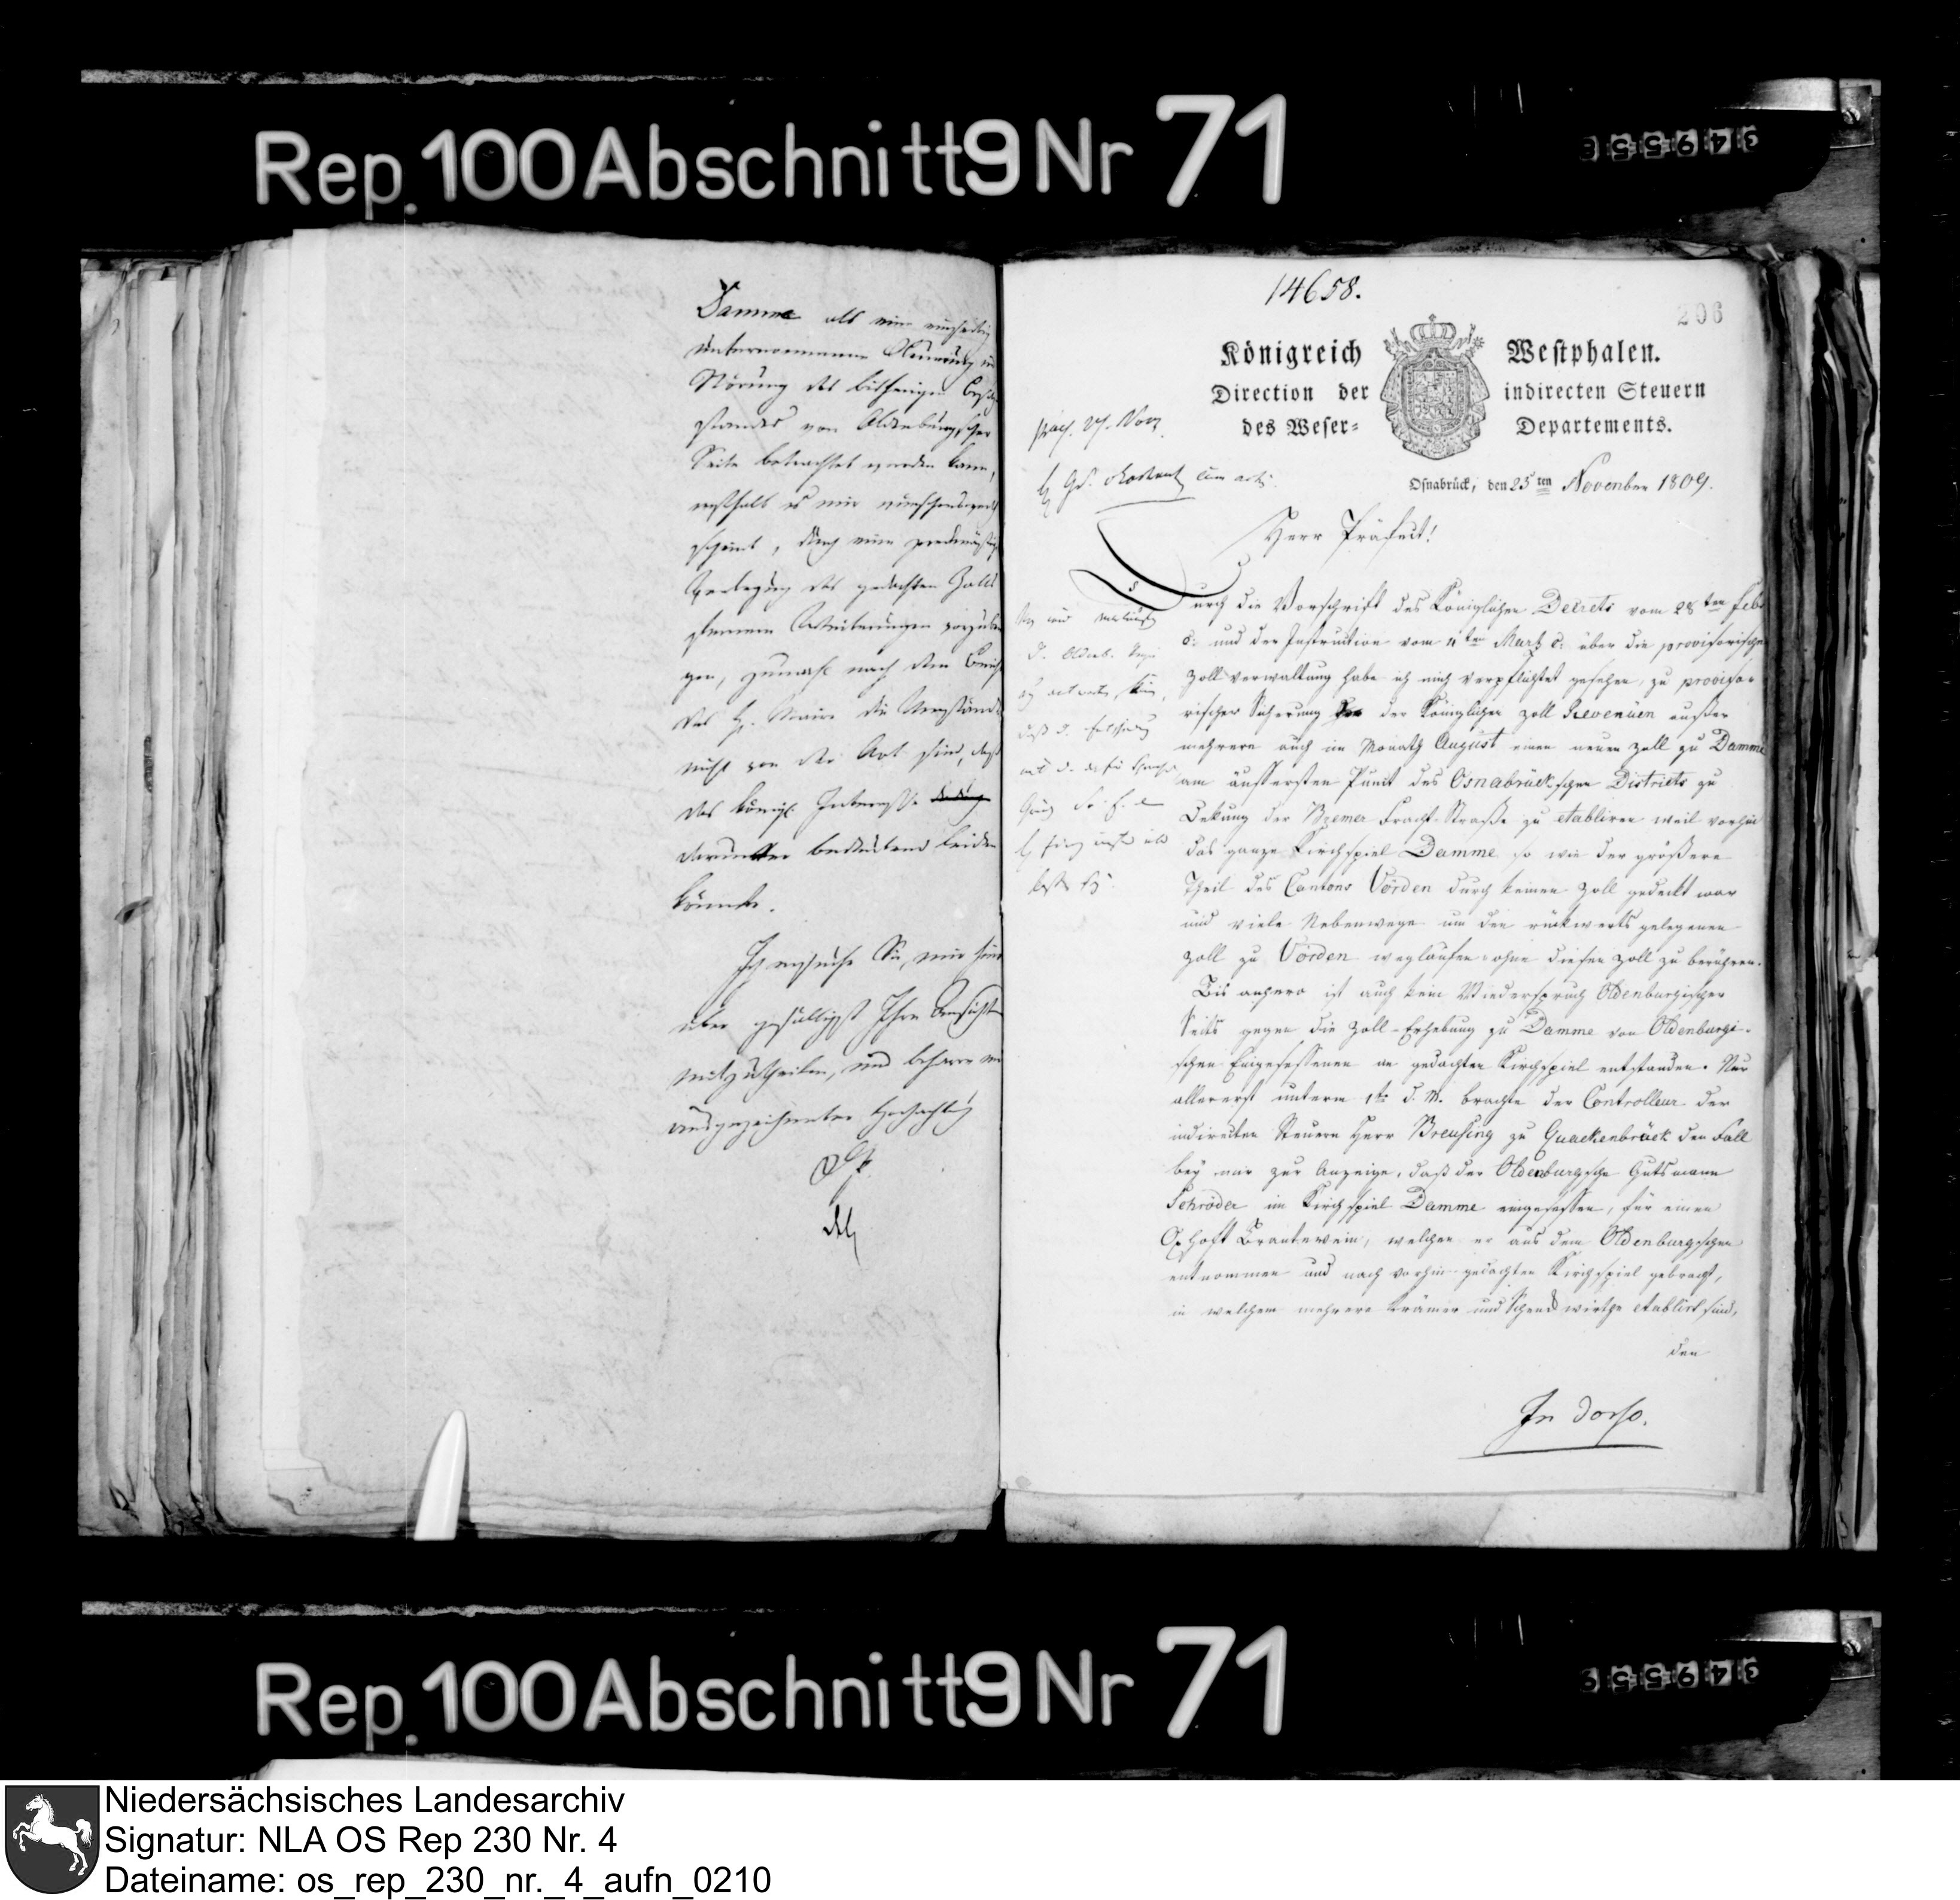 Rep. 100 Abschnitt 9 Nr 71
349558
Damme als eine einseitig
unternommene Neuerung und
Störung des bisherigen Besitz
standes von Oldenburgscher
Seite betrachtet werden kann,
weshalb es mir wünschenswerth
scheint, durch eine
Verlegung des gedachten Zolls
Weiterungen vorzubeu
gen, zumahl nach dem Bericht
des H. Maire die Umstände
nicht von der Art sind, daß
das Königl. Interesse
darunter bedeutend leiden
könnte.
Ich ersuche Sie, mir hier
über gefälligst Ihre Ansicht
mitzutheilen, und beharre mit
ausgezeichneter Hochachtung
14658.
206
Königreich Westphalen.
Direction der indirecten Steuern
des Weser- Departements.
Osnabrück, den 25ten November 1809.
Herr Präfect!
Durch die Vorschrift des Königlichen Decrets vom 28ten Febr
c. und der Instruction vom 4ten Martz c. über die provisorische
Zollverwaltung habe ich mich verpflichtet gesehen, zu proviso-
rischer Sicherung der Königlichen Zoll Revenüen außer
mehrern auch im Monath August einen neuen Zoll zu Damme
am äussersten Punct des Osnabrückschen Districts zu
Dekung der Bremer Fracht-Straße zu etabliren weil vorhin
das ganze Kirchspiel Damme so wie der größere
Theil des Cantons Vörden durch keinen Zoll gedeckt war
und viele Nebenwege um den rückwerts gelegenen
Zoll zu Vörden weglaufen ohne diesen Zoll zu berühren.
Bis anhero ist auch kein Wiederspruch Oldenburgischer
Seits gegen die Zoll-Erhebung zu Damme von Oldenburgi-
schen Eingesessenen im gedachten Kirchspiel entstanden. Nur
allererst unterm 1ten d. M. brachte der Controlleur der
indirecten Steuern Herr Breusing zu Quackenbrück den Fall
bey mir zur Anzeige, daß der Oldenburgsche Gutsmann
Schröder im Kirchspiel Damme eingesessen, für einen
Oxhoft Brantewein, welchen er aus dem Oldenburgschen
entnommen und nach vorhin gedachten Kirchspiel gebracht,
in welchem mehrere Krämer und Schenckwirthe etablirt sind,
den
In dorso.
Rep. 100 Abschnitt 9 Nr 71
349559
Niedersächsisches Landesarchiv
Signatur: NLA OS Rep 230 Nr. 4
Dateiname: os_rep_230_nr._4_aufn_0210